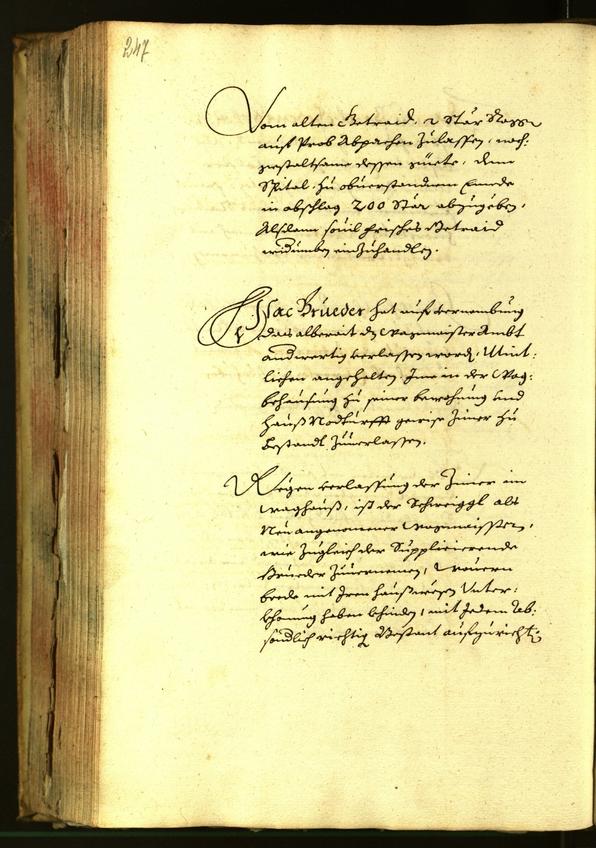 247
Vom alten Getraid, 2 Stär Roggen
auf Prob Abpachen Zulassen, nach:
gestaltsame dessen güete, dem
Spital hu obuerstandnem Ennde
in abschlag 200 Stär abzugeben,
Alsdann souil frisches Getraid
widumben einZuhandlen.
Isac Brüeder hat auf vernembung
das alberait das Wagmaister Ambt
anderwertig verlassen worden, Münt:
lichen angehalten Ime in der Wag:
behausung zu seiner bewohnung und
hauß Nodturfft gewise Zimer zu
bestandt Zuuerlassen.
Wegen verlassung der Zimer im
Waghauß, ist der Schweiggl als
Neu angenomener Wagmaister,
wie Zugleich der Supplicierende
Brüeder Zuuernemen,
beede mit Iren haußwesen Unter:
khomung haben khinden, mit Jedem Ab:
sönndlich richtig Bestant aufzuricht